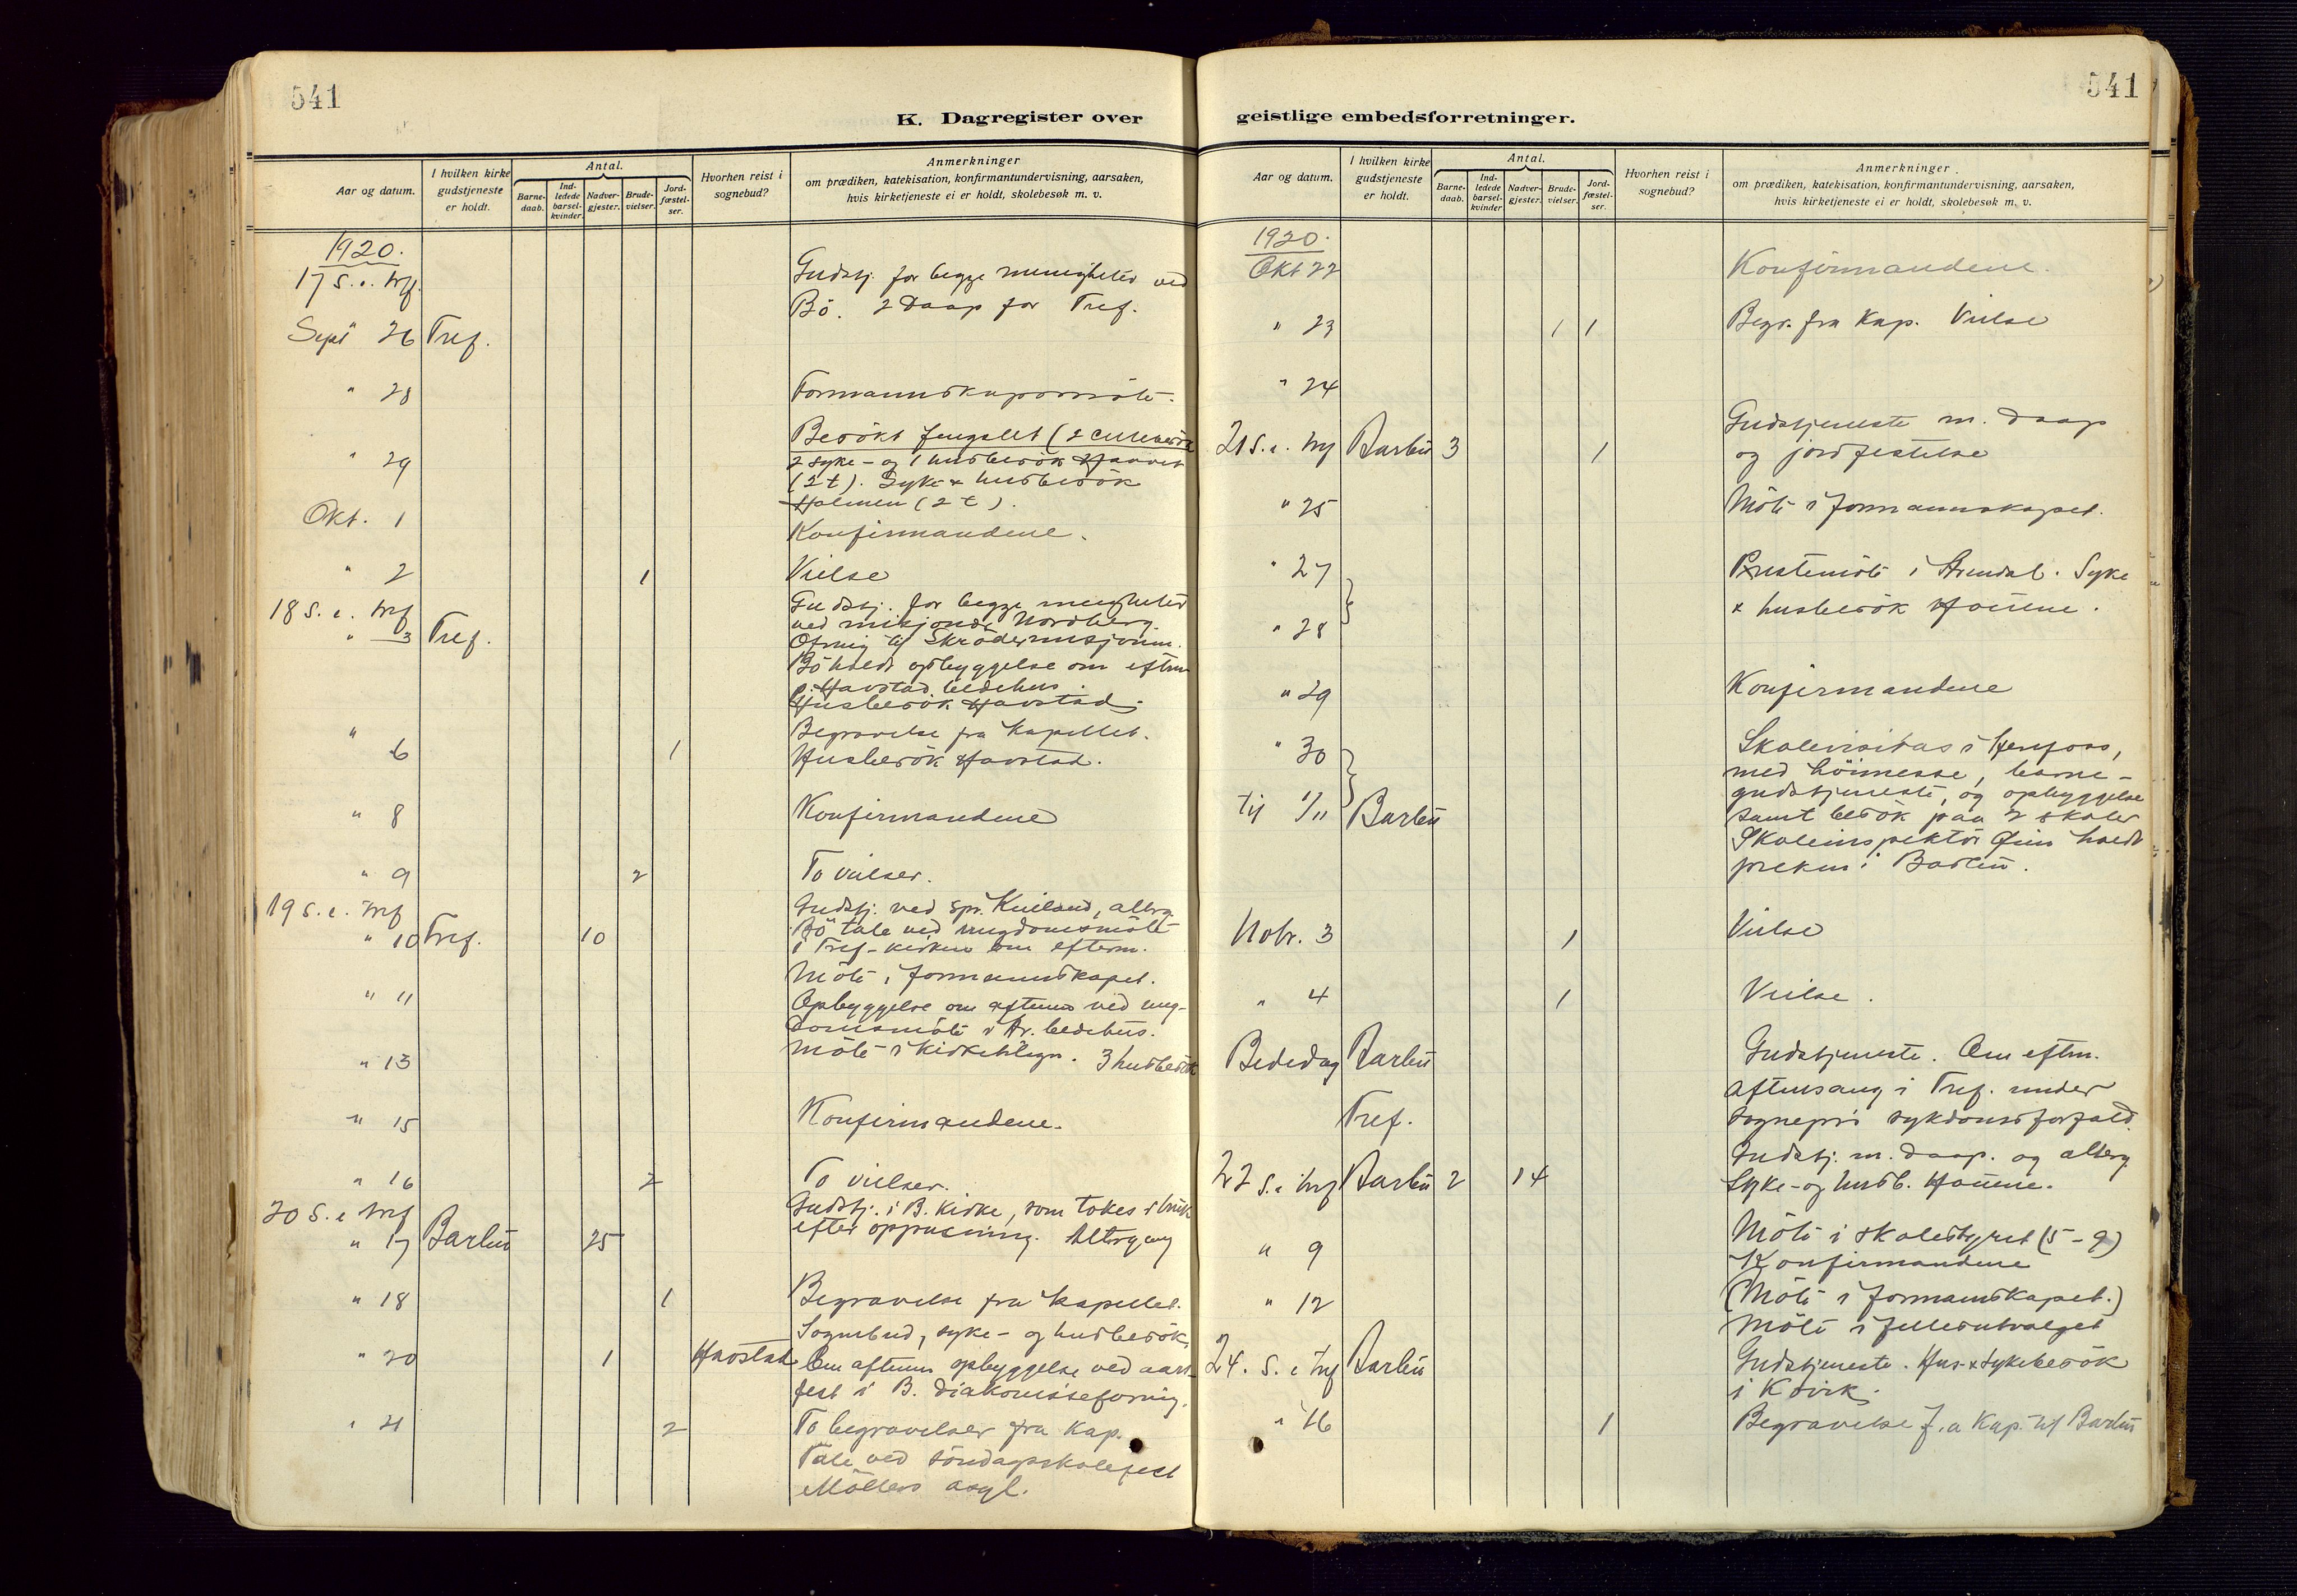 541
K. Dagregister over
Aar og datum.
I hvilken kirke gudstjeneste er holdt.
Antal.
Barne-daab.
Ind-ledede barsel-kvinder.
Nadver-gjester.
Brude-vielser.
Jord-fæstel-ser.
Hvorhen reist i sognebud?
Anmerkninger
om prædiken, katekisation, konfirmantundervisning, aarsaken,
hvis kirketjeneste ei er holdt, skolebesøk m. v.
1920.
17 S. e. tref.
Gudstj. for begge menigheter ved
Bö. 2 Daap for Tref.
Sept 26 Tref.
" 28 Formannskapsmöte.
" 29 Besökt fengslet (2 cellebesök
2 syke- og 1 husbesök
(2 t). Syke x husbesök
Okt. 1 Holmen (2 t).
Konfirmandene.
" 2 1 Vielse
18 S. e. tref
" 3 Tref.
Gudstj. for begge menigheter
ved misjonær Nordberg.
Ofring til
Bö holdt opbyggelse om efterm
p. Havstad bedehus.
Husbesök Havstad.
" 6 1 Begravelse fra kapellet.
Husbesök Havstad.
" 8 Konfirmandene
" 9 2 To vielser.
19 S. e. tref
" 10 Tref. 10
Gudstj. ved spr. Kuiland, alterg.
Bö tale ved ungdomsmöte
i Tref-kirken om efterm.
Möte i formannskapet.
" 11 Opbyggelse om aftenen ved ung-
domsmöte i Ar. bedehus.
" 13 Möte i kirketilsyn. 3 husbesök
" 15 Konfirmandene.
" 16 2 To vielser.
20 S. e tref
" 17 Barbu 25
Gudstj. i B. kirke, som tokes i bruk
efter oppussning. Altergang
" 18 1 Begravelse fra kapellet.
Sognebud, syke- og husbesök
" 20 1 Havstad Om aftenen opbyggelse ved aars-
fest i B. diakonisseforning.
" 21 2 To begravelser fra Kap.
Tale ved söndagsskolefest
Möllers asyl.
541
geistlige embedsforretninger.
Aar og datum.
I hvilken kirke gudstjeneste er holdt.
Antal.
Barne-daab.
Ind-ledede barsel-kvinder
Nadver-gjester.
Brude-vielser.
Jord-fæstel-ser.
Hvorhen reist i sognebud?
Anmerkninger
om prædiken, katekisation, konfirmantundervisning, aarsaken,
hvis kirketjeneste ei er holdt, skolebesøk m. v.
1920.
Okt 22 Konfirmandene.
" 23 1 1 Begr. fra Kap. Vielse
" 24
21 S. e. tref Barbu 3 1
Gudstjeneste m. daap
og jordfestelse
" 25 Möte i formannskapet.
" 27 Prestemöte i Arendal. Syke
x husbesök
" 28
" 29 Konfirmandene
" 30 Skolevisitas i
med höimesse, barne-
til 1/11 Barbu gudstjeneste, og opbyggelse
samt besök paa 2 skoler
Skoleinspektör holdt
preken i Barbu.
Nobr. 3 1 Vielse
" 4 1 Vielse.
Bededag Barbu Gudstjeneste. Om eftm.
aftensang i Tref. under
Tref. sognepr's sykdomsforfald.
22 S. e tref Barbu 2 14 Gudstj. m. daap. og alterg
Syke- og husb.
" 9 Möte i skolestyret (5-9)
Konfirmandene
" 12 (Möte i formannskapet.)
Möte i fellesutvalget
24. S. e tref Barbu Gudstjeneste. Hus- x sykebesök
i Kövik.
" 16 1 Begravelse f.a Kap. til Barbu